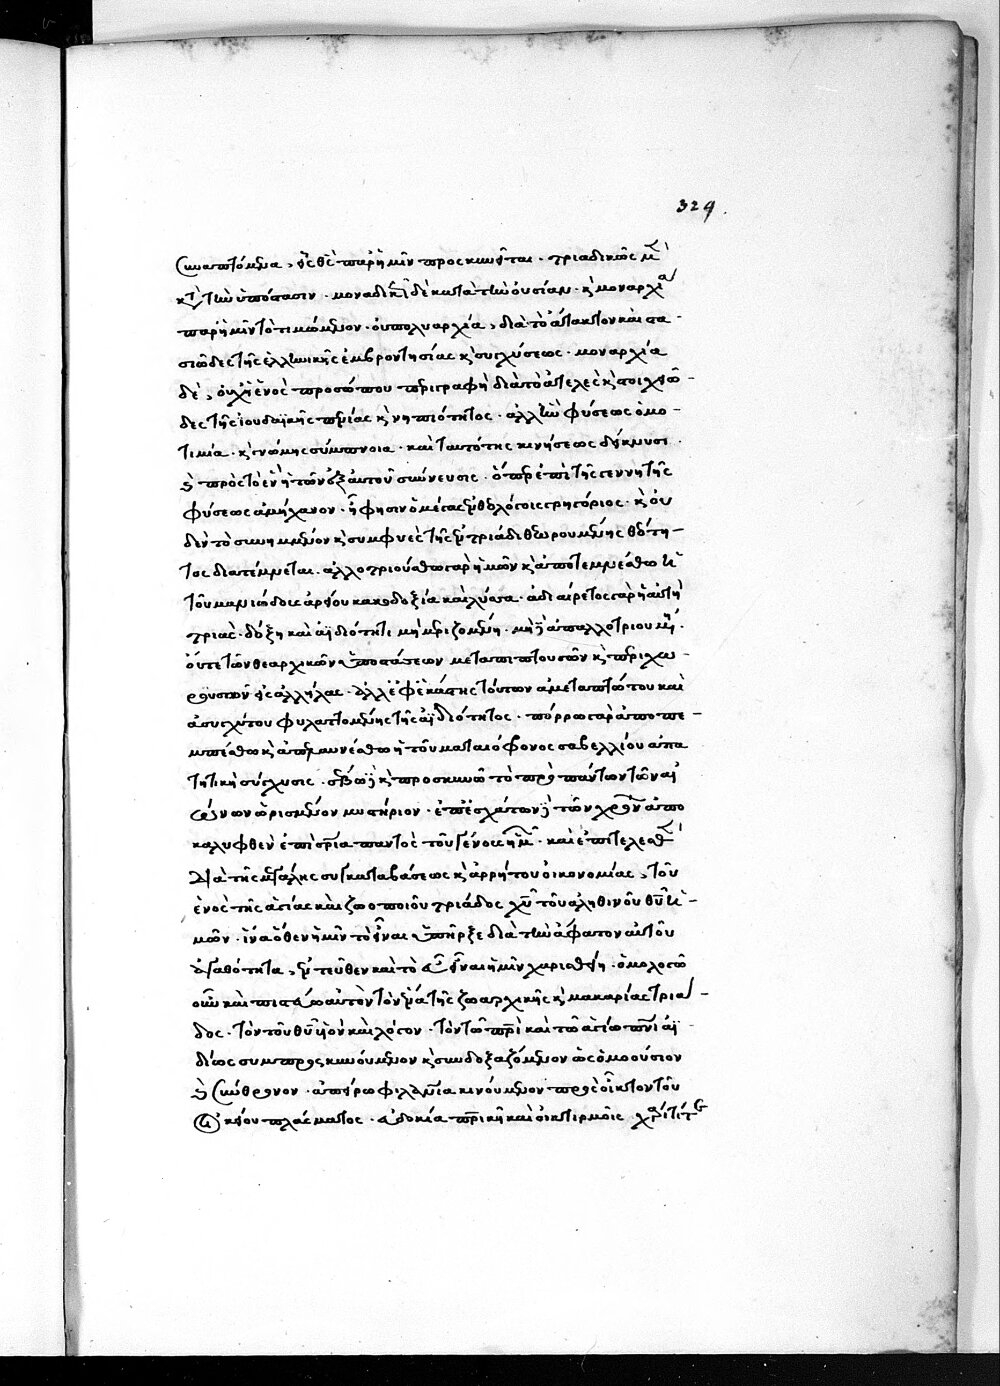 329.
συναπτόμενα, εἷς θεὸς παρ' ἡμῖν προσκυνεῖται. τριαδικῶς μὲν
κατὰ τὴν ὑπόστασιν. μοναδικῶς δὲ κατὰ τὴν οὐσίαν. καὶ μοναρχία
παρ' ἡμῖν τὸ τιμώμενον. οὐ πολυαρχία, διὰ τὸ ἄτακτον καὶ στα-
σιῶδες τῆς ἑλληνικῆς ἐμβροντησίας καὶ συγχύσεως. μοναρχία
δὲ, οὐχὶ ἑνὸς προσώπου περιγραφὴ διὰ τὸ ἀτελὲς καὶ στοιχειῶ-
δες τῆς ἰουδαϊκῆς πενίας καὶ νηπιότητος. ἀλλ' ἣν φύσεως ὁμο-
τιμία. καὶ γνώμης σύμπνοια. καὶ ταυτότης κινήσεως
καὶ πρὸς τὸ ἓν ἡ τῶν ἐξ αὐτοῦ σύννευσις. ὅπερ ἐπὶ τῆς γεννητῆς
φύσεως ἀμήχανον. ᾗ φησιν ὁ μέγας ἐν θεολόγοις γρηγόριος. καὶ οὐ
δὲν τὸ συνημμένον καὶ συμφυὲς τῆς ἐν τριάδι θεωρουμένης θεότη-
τος διατέμνεται. ἀλλοτριούσθω γὰρ ἡμῶν καὶ ἀποτεμνέσθω ἡ
τοῦ μανιώδους ἀρείου κακοδοξία καὶ λύσσα. ἀδιαίρετος γὰρ ἡ αὐτὴ
τριὰς. δόξῃ καὶ ἀϊδιότητι μὴ μεριζομένη. μὴ δὲ ἀπαλλοτριουμένη.
οὔτε τῶν θεαρχικῶν ὑποστάσεων μεταπιπτουσῶν καὶ περιχω-
ρουσῶν εἰς ἀλλήλας. ἀλλ' ἐφ' ἑκάστης τούτων ἀμεταπτώτου καὶ
ἀσυγχύτου φυλαττομένης τῆς ἀϊδιότητος. πόρρω γὰρ ἀποπε-
μπέσθω καὶ ἡ τοῦ ματαιόφρονος σαβελλίου ἀπα
τητικὴ σύγχυσις. σέβω δὲ καὶ προσκυνῶ τὸ πρὸ πάντων τῶν αἰ
ώνων ὡρισμένον μυστήριον. ἐπ' ἐσχάτων δὲ τῶν χρόνων ἀπο
καλυφθὲν ἐπὶ σωτηρία παντὸς τοῦ γένους ἡμῶν. καὶ ἐπιτελεσθὲν
διὰ τῆς μεγάλης συγκαταβάσεως καὶ ἀρρήτου οἰκονομίας, τοῦ
ἑνὸς τῆς ἁγίας καὶ ζωοποιοῦ τριάδος χριστοῦ τοῦ ἀληθινοῦ θεοῦ ἡ-
μῶν. ἵνα ὅθεν ἡμῖν τὸ εἶναι ὑπῆρξε διὰ τὴν ἄφατον αὐτοῦ
ἀγαθότητα, ἐντεῦθεν καὶ τὸ εὖ εἶναι ἡμῖν χαρισθείη. ὁμολογῶ
οὖν καὶ πιστεύω αὐτὸν τὸν ἕνα τῆς ζωαρχικῆς καὶ μακαρίας τριά-
δος. τὸν τοῦ θεοῦ υἱὸν καὶ λόγον. τὸν τῷ πατρὶ καὶ τῷ ἁγίῳ πνεύματι ἀϊ-
δίως συμπροσκυνούμενον καὶ συνδοξαζόμενον ὡς ὁμοούσιον
καὶ σύνθρονον. ἀπείρῳ φιλανθρωπίᾳ κινούμενον πρὸς οἶκτον τοῦ
οἰκείου πλάσματος. εὐδοκίᾳ πατρικῇ καὶ οἰκτιρμοῖς